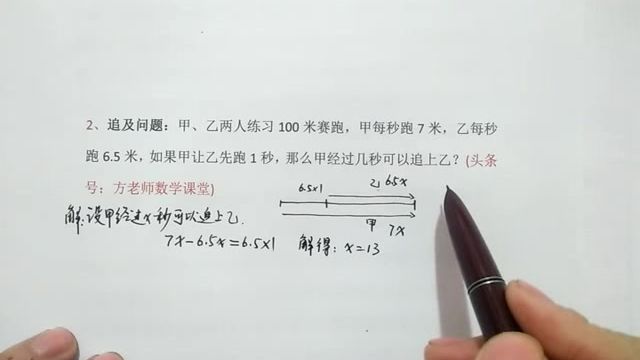 2、追及问题：甲、乙两人练习 100 米赛跑，甲每秒跑 7 米，乙每秒
跑 6.5 米，如果甲让乙先跑 1 秒，那么甲经过几秒可以追上乙？(头条
号：方老师数学课堂)
6.5×1 乙 6.5x
解:设甲经过x秒可以追上乙.
甲 7x
7x-6.5x=6.5×1 解得：x=13